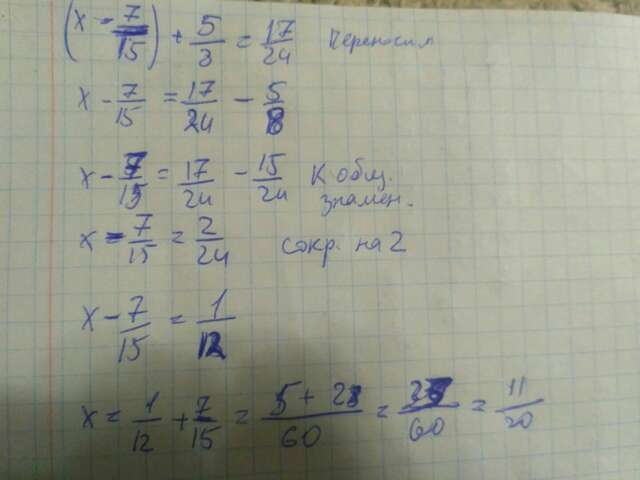 (x - 7/15) + 5/3 = 17/24 Переносим
x - 7/15 = 17/24 - 5/8
x - 7/15 = 17/24 - 15/24 К общ. знамен.
x - 7/15 = 2/24 сокр. на 2
x - 7/15 = 1/12
x = 1/12 + 7/15 = 5 + 28/60 = 33/60 = 11/20